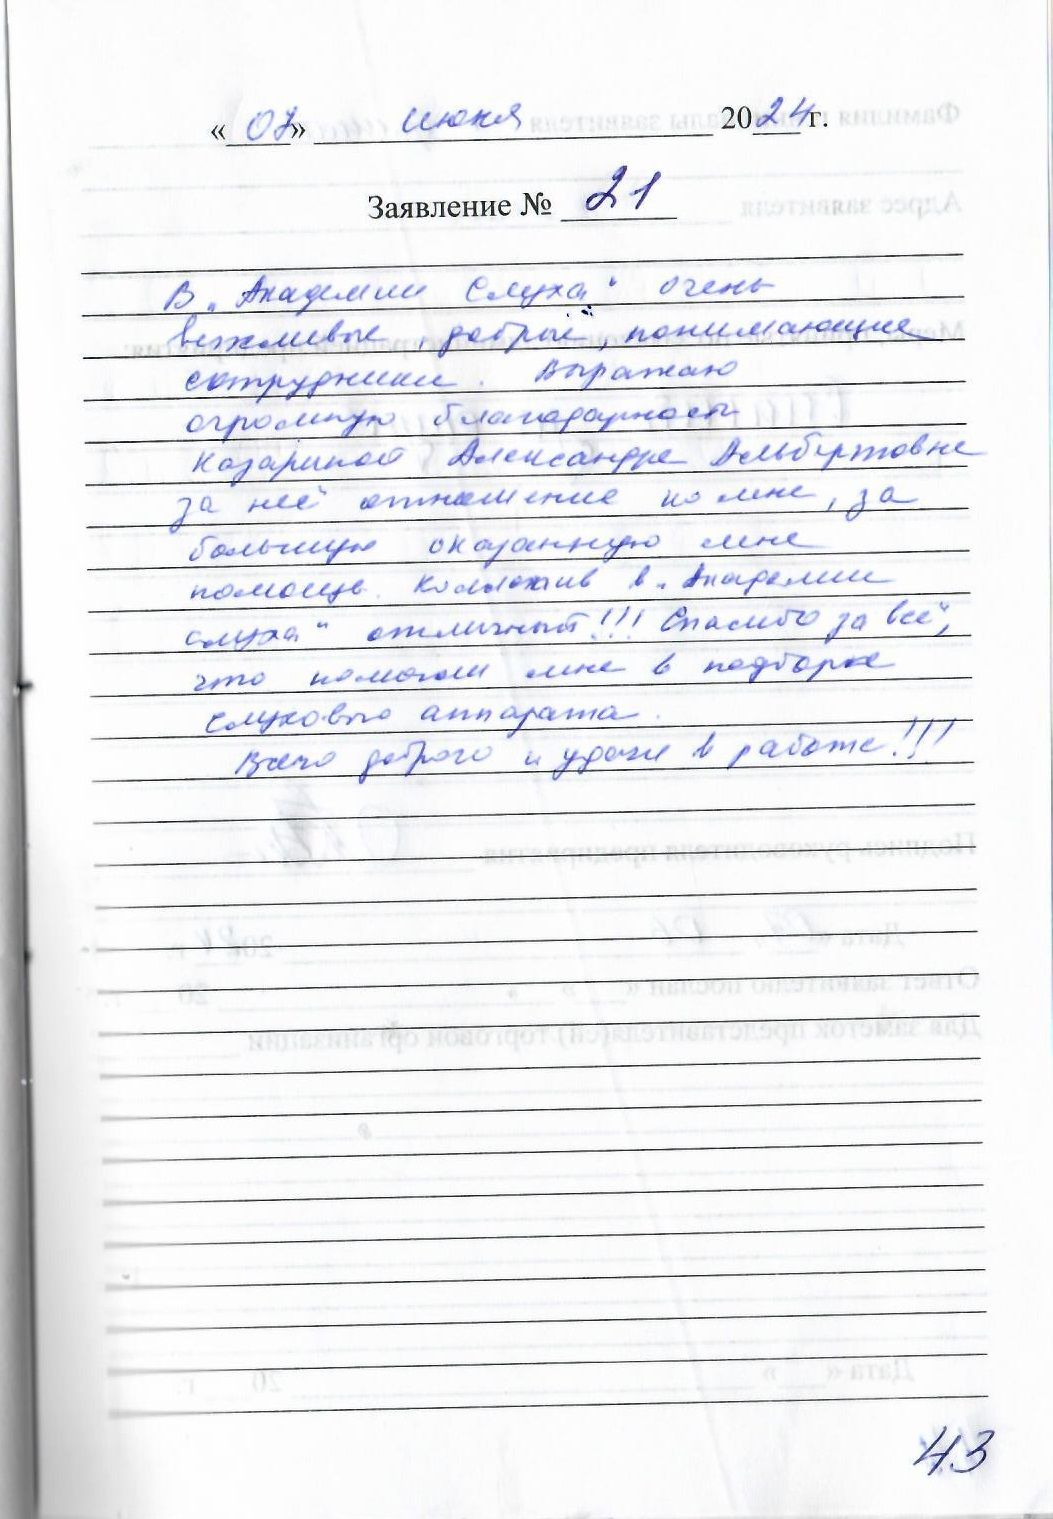 « 07 » июня 2024 г.
Заявление № 21
В „Академии Слуха“ очень
вежливые, добрые, понимающие
сотрудники. Выражаю
огромную благодарность
Казариной Александре Альбертовне
за неё отношение ко мне, за
большую оказанную мне
помощь. Коллектив в „Академии
слуха“ отличный!!! Спасибо за всё,
что помогли мне в подборке
слухового аппарата.
Всего доброго и удачи в работе!!!
43